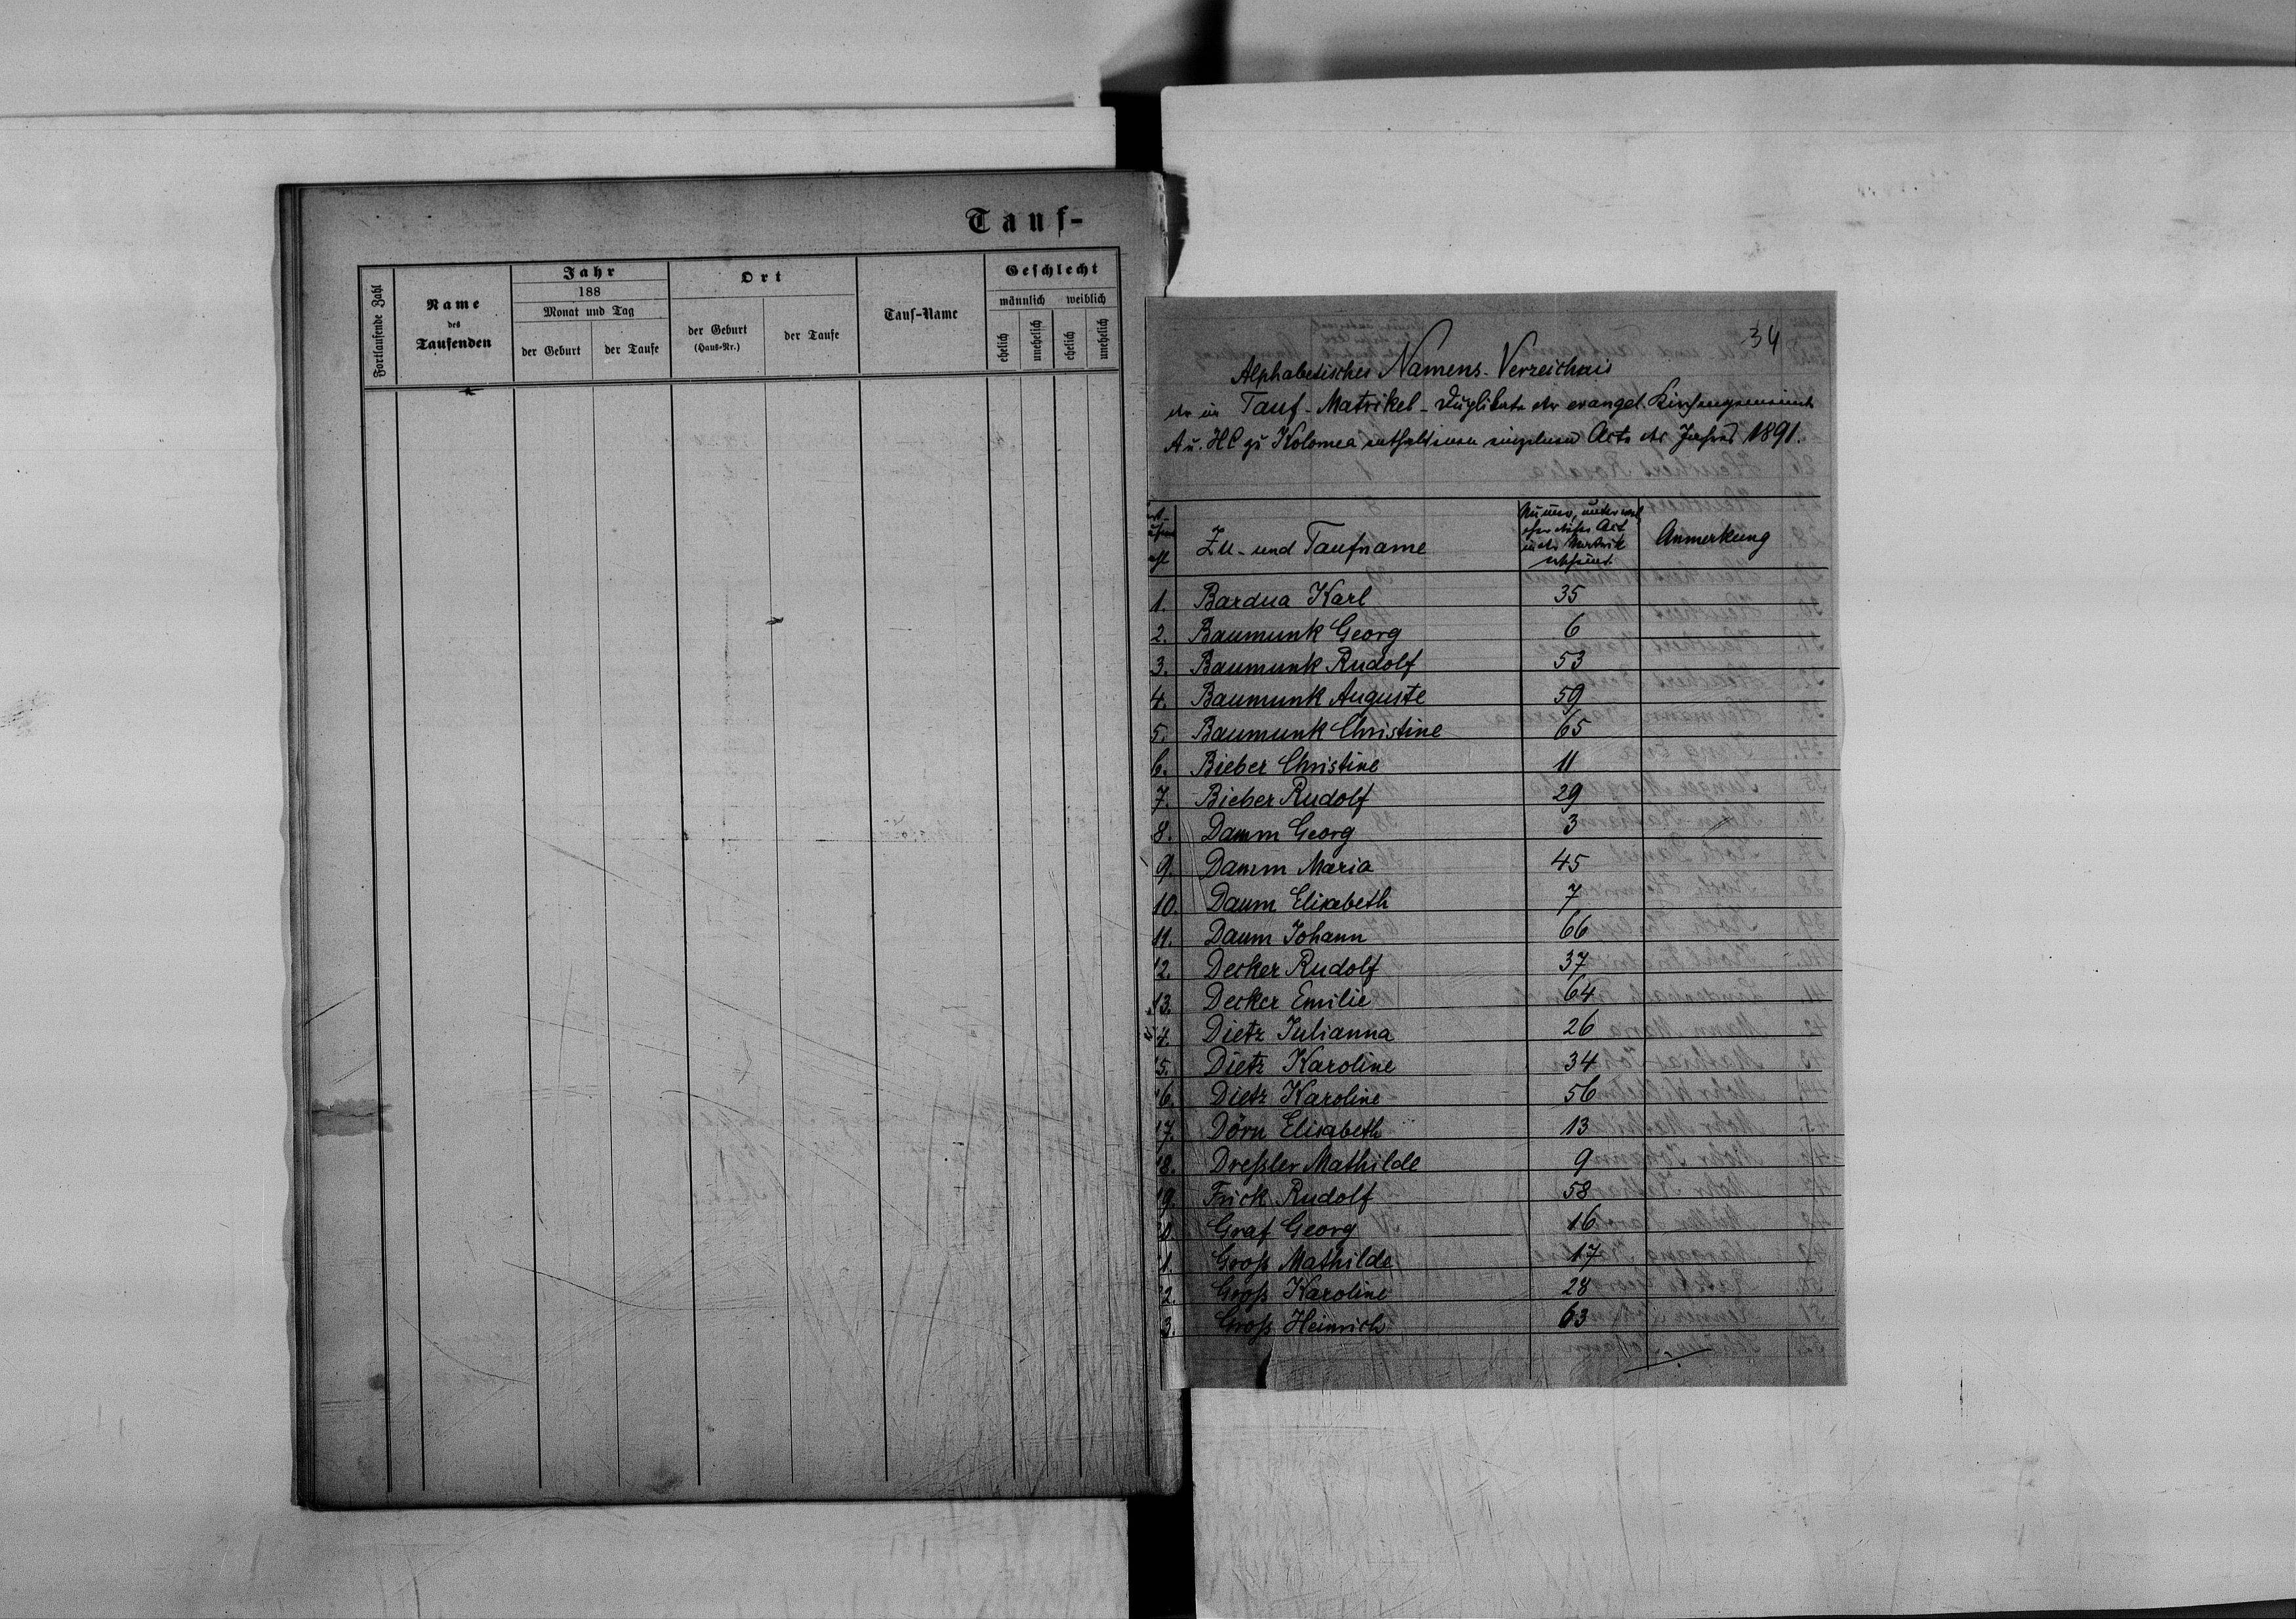 Tauf-
Fortlaufende Zahl
Name
des
Taufenden
Jahr
188
Monat und Tag
der Geburt
der Taufe
Ort
der Geburt
(Haus-Nr.)
der Taufe
Tauf-Name
Geschlecht
männlich weiblich
ehelich
unehelich
ehelich
unehelich
34
Alphabetisches Namens-Verzeichnis
der im Tauf-Matrikel-Duplikate der evangel. Kirchengemeinde
A u. HC zu Kolomea enthaltenen einzelnen Acte des Jahres 1891.
Zu- und Taufname
Numer, unter wel
cher dieser Act
in der Matrik
erscheint.
Anmerkung
1. Bardua Karl 35
2. Baumunk Georg 6
3. Baumunk Rudolf 53
4. Baumunk Auguste 59
5. Baumunk Christine 65
6. Bieber Christine 11
7. Bieber Rudolf 29
8. Damm Georg 3
9. Damm Maria 45
10. Daum Elisabeth 7
11. Daum Johann 66
12. Decker Rudolf 37
13. Decker Emilie 64
4. Dietz Julianna 26
5. Dietz Karoline 34
6. Dietz Karoline 56
7. Dörn Elisabeth 13
8. Dreßler Mathilde 9
9. Frick Rudolf 58
0. Graf Georg 16
1. Groß Mathilde 17
2. Groß Karoline 28
3. Groß Heinrich 63